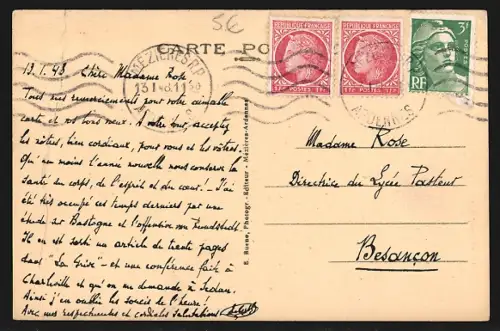 5€
CARTE PO
RÉPUBLIQUE FRANÇAISE
RÉPUBLIQUE FRANÇAISE
3F
RF
MÉZIÈRES RP
ARDENNES
13.1.48 Chère Madame Rose
Tous nos remerciements pour votre aimable
carte et vos bons vœux. A votre tour, acceptez
les nôtres, bien cordiaux, pour vous et les vôtres.
Qu'au moins l'année nouvelle nous conserve la
santé du corps, de l'esprit et du cœur! J'ai
été très occupé ces temps derniers par une
étude sur Bastogne et l'offensive von Rundstedt.
Il en est sorti un article de trente pages
dans "La Grive" - et une conférence faite à
Charleville et qu'on me demande à Sedan.
Ainsi j'en oublie les soucis de l'heure!
Avec nos respectueuses et cordiales salutations
Mézières-Ardennes
Madame Rose
Directrice du Lycée Pasteur
Besançon